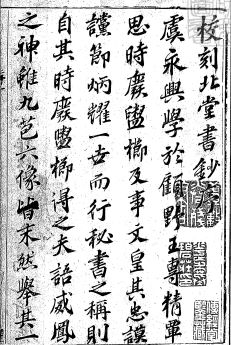 校刻北堂書鈔序
虞永興學於顧野王專精覃
思時廢盥櫛及事文皇其忠謨
讜節炳耀一世而行秘書之稱則
自其時廢盥櫛得之夫語威鳳
之神雖九苞六像皆末然舉其一